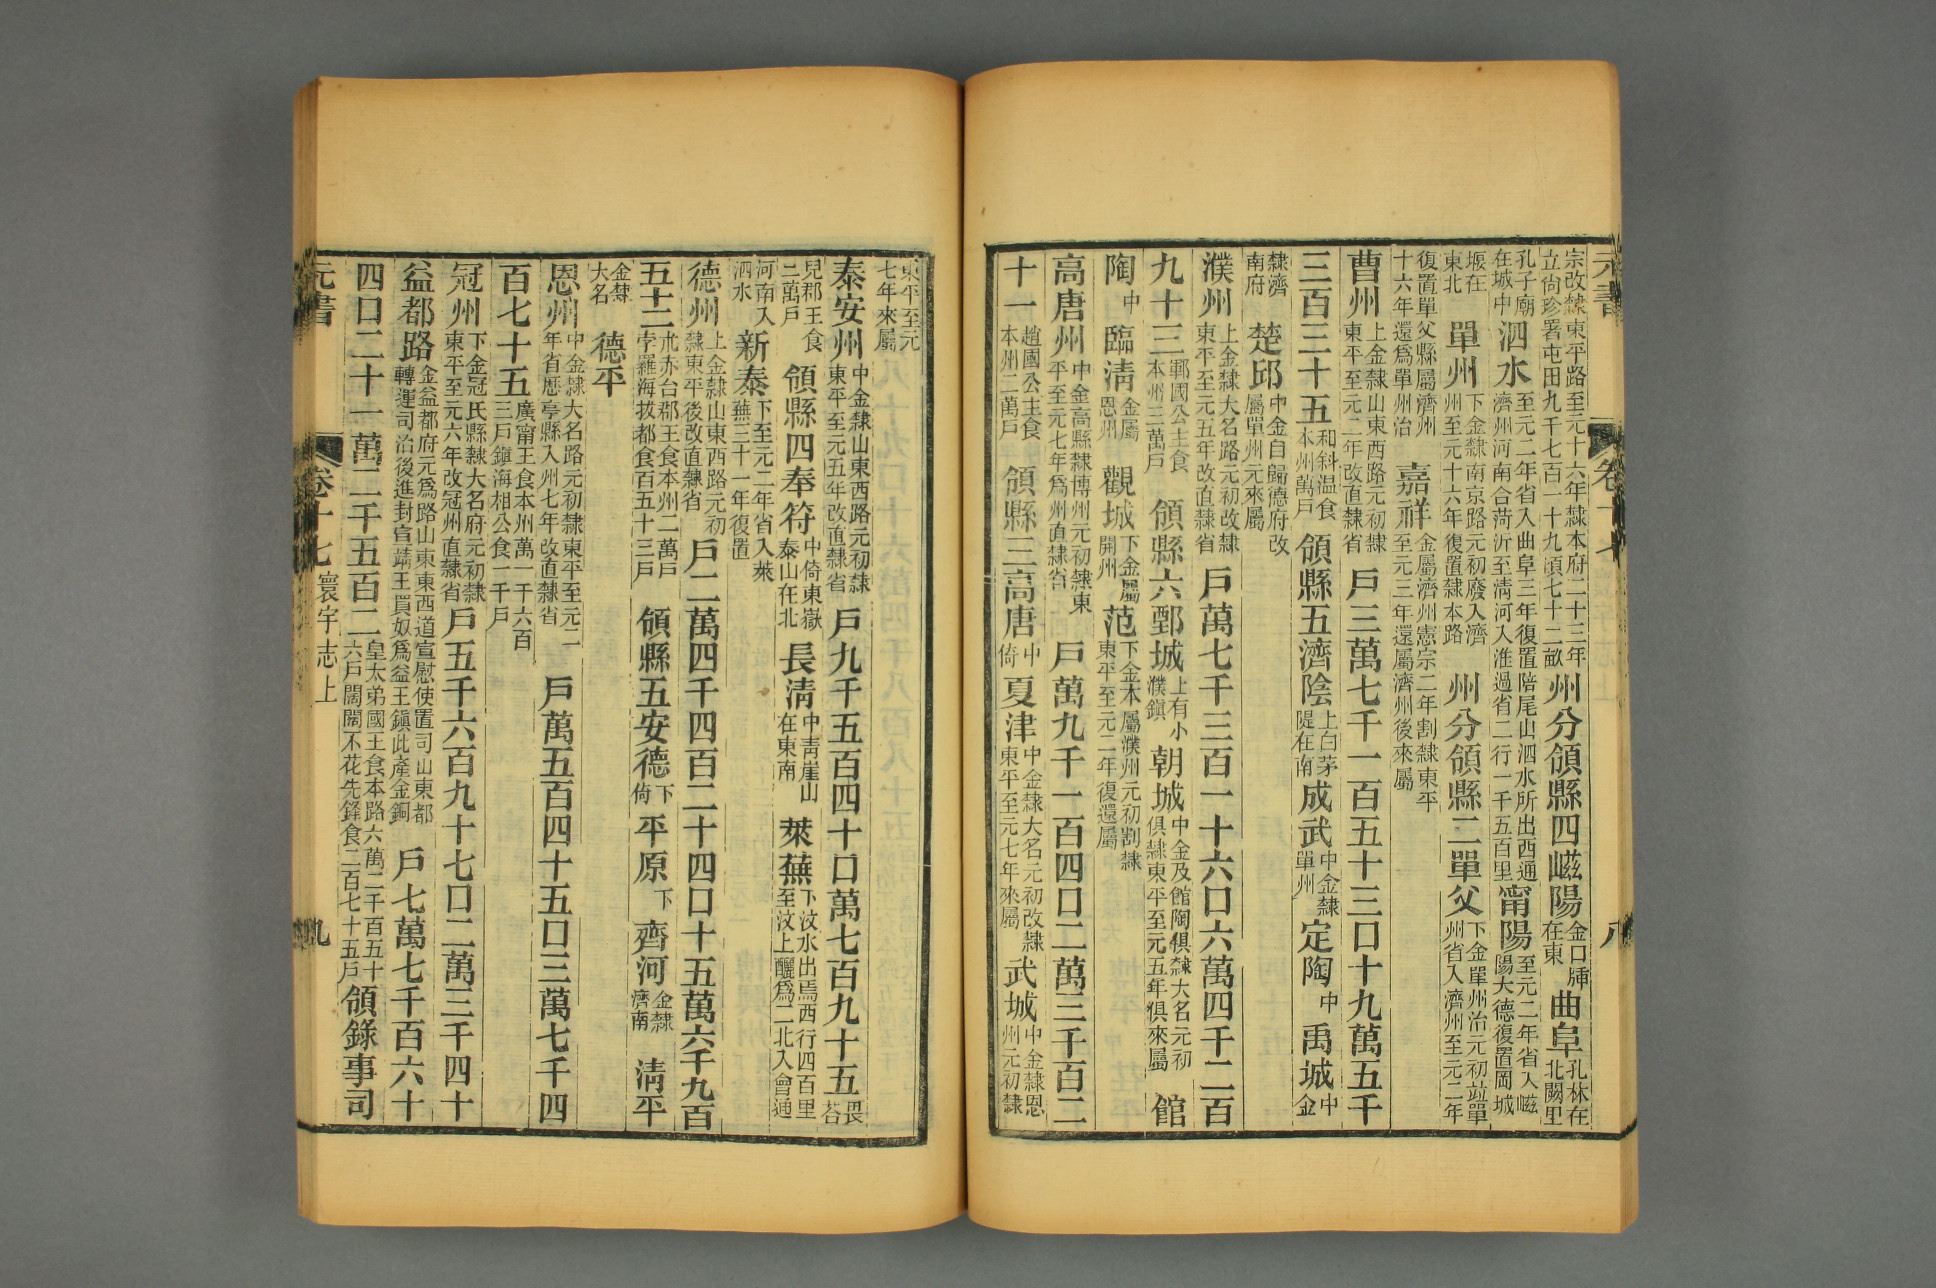 宗改隸東平路至元十六年隸本府二十三年立尙珍署屯田九千七百一十九頃七十二畝州分領縣四嶫陽金口牐在東曲阜孔林在北闕里
孔子廟在城中泗水至元二年省入曲阜三年復置陪尾山泗水所出西通濟州河南合菏沂至淸河入淮過省二行一千五百里甯陽至元二年省入嶫陽大德復置岡城
堰在東北單州下金隸南京路元初廢入濟州至元十六年復置隸本路州分領縣二單父下金單州治元初竝單州省入濟州至元二年
復置單父縣屬濟州十六年還爲單州治嘉祥金屬濟州憲宗二年割隸東平至元三年還屬濟州後來屬
曹州上金隸山東西路元初隸東平至元二年改直隸省戶三萬七千一百五十三口十九萬五千
三百三十五和斜温食本州萬戶領縣五濟陰上白茅隄在南成武中金隸單州定陶中禹城中金
隸濟南府楚邱中金自歸德府改屬單州元來屬
濮州上金隸大名路元初改隸東平至元五年改直隸省戶萬七千三百一十六口六萬四千二百
九十三鄆國公主食本州三萬戶領縣六鄄城上有小濮鎭朝城中金及館陶俱隸大名元初俱隸東平至元五年俱來屬館
陶中臨淸金屬恩州觀城下金屬開州范下金本屬濮州元初割隸東平至元二年復還屬
高唐州中金高縣隸博州元初隸東平至元七年爲州直隸省戶萬九千一百四口二萬三千百二
十一趙國公主食本州二萬戶領縣三高唐中倚夏津中金隸大名元初改隸東平至元七年來屬武城中金隸恩州元初隸
東平至元七年來屬
泰安州中金隸山東西路元初隸東平至元五年改直隸省戶九千五百四十口萬七百九十五畏荅
兒郡王食二萬戶領縣四奉符中倚東嶽泰山在北長淸中靑崖山在東南萊蕪下汶水出焉西行四百里至汶上釃爲二北入會通
河南入泗水新泰下至元二年省入萊蕪三十一年復置
德州上金隸山東西路元初隸東平後改直隸省戶二萬四千四百二十四口十五萬六千九百
五十二朮赤台郡王食本州二萬戶孛羅海拔都食百五十三戶領縣五安德下倚平原下齊河金隸濟南淸平
金隸大名德平
恩州中金隸大名路元初隸東平至元二年省歷亭縣入州七年改直隸省戶萬五百四十五口三萬七千四
百七十五廣甯王食本州萬一千六百三戶鎭海相公食一千戶
冠州下金冠氏縣隸大名府元初隸東平至元六年改冠州直隸省戶五千六百九十七口二萬三千四十
益都路金益都府元爲路山東東西道宣慰使置司山東都轉運司治後進封宣靖王買奴爲益王鎭此產金銅戶七萬七千百六十
四口二十一萬二千五百二皇太弟國王食本路六萬二千百五十六戶闊闊不花先鋒食二百七十五戶領錄事司
元書
卷十七寰宇志上
九
元書
卷十七
八